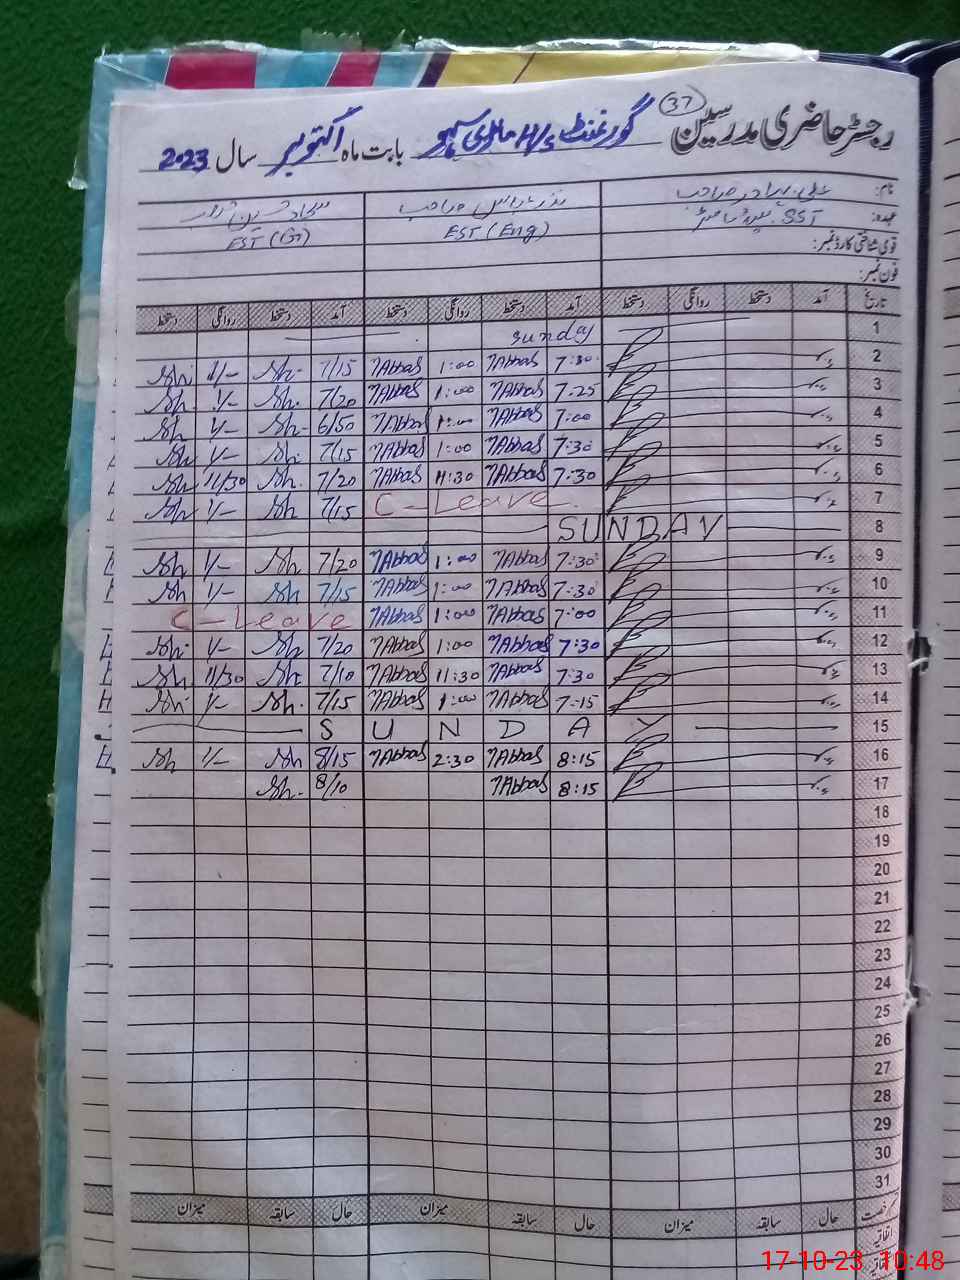 37
رجسٹر حاضری مدرسین گورنمنٹ H/S ماڑی بابت ماہ اکتوبر سال 2023
نام: علی صاحب عباس صاحب
عہدہ: SST EST (Eng) EST (G)
قومی شناختی کارڈ نمبر:
فون نمبر:
تاریخ آمد دستخط روانگی دستخط آمد دستخط روانگی دستخط آمد دستخط روانگی دستخط
1 Sunday
2 7:30 Abbas 1:00 Abbas 7/15 Sh. 1/- Sh.
3 7:25 Abbas 1:00 Abbas 7/20 Sh. 1/- Sh.
4 7:00 Abbas 1:00 Abbas 6/50 Sh. 1/- Sh
5 7:30 Abbas 1:00 Abbas 7/15 Sh. 1/- Sh
6 7:30 Abbas 11:30 Abbas 7/20 Sh. 11/30 Sh
7 C-Leave 7/15 Sh 1/- Sh
8 SUNDAY
9 7:30 Abbas 1:00 Abbas 7/20 Sh 1/- Sh
10 7:30 Abbas 1:00 Abbas 7/15 Sh 1/- Sh
11 7:00 Abbas 1:00 Abbas C-Leave
12 7:30 Abbas 1:00 Abbas 7/20 Sh 1/- Sh.
13 7:30 Abbas 11:30 Abbas 7/10 Sh 11/30 Sh.
14 7:15 Abbas 1:00 Abbas 7/15 Sh. 1/- Sh.
15 SUNDAY
16 8:15 Abbas 2:30 Abbas 8/15 Sh 1/- Sh
17 8:15 Abbas 8/10 Sh.
18
19
20
21
22
23
24
25
26
27
28
29
30
31
رخصت حال سابقہ میزان حال سابقہ میزان حال سابقہ میزان
اتفاقیہ
17-10-23 10:48